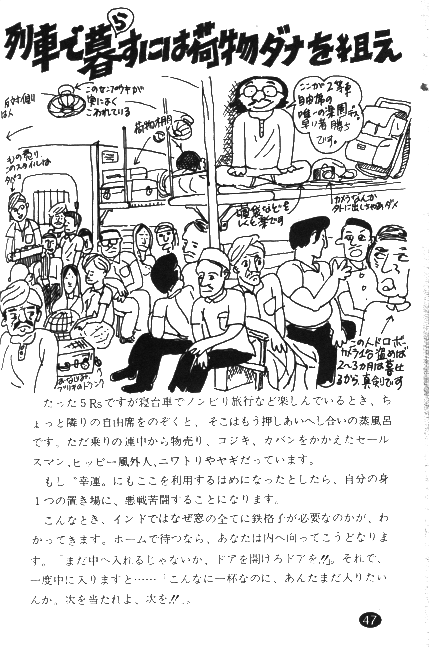 列車で暮らすには荷物ダナを狙え
このセンプウキが
実によく
こわれている
荷物棚
ここが2等車
自由席の
唯一の楽園デス。
早い者勝ち
です。
もの売り、
このスタイルは
寝袋などを
しくと楽です
カメラなんか
外に出しちゃあダメ
この人ドロボー
カメラ1台盗めば
2〜3カ月は暮せ
るから、真剣です
たった5Rsですが寝台車でノンビリ旅行など楽しんでいるとき、ち
ょっと隣りの自由席をのぞくと、そこはもう押しあいへし合いの蒸風呂
です。ただ乗りの連中から物売り、コジキ、カバンをかかえたセール
スマン、ヒッピー風外人、ニワトリやヤギだっています。
もし〝幸運〟にもここを利用するはめになったとしたら、自分の身
1つの置き場に、悪戦苦闘することになります。
こんなとき、インドではなぜ窓の全てに鉄格子が必要なのかが、わ
かってきます。ホームで待つなら、あなたは内へ向ってこうどなりま
す。「まだ中へ入れるじゃないか、ドアを開けろドアを!!」。それで、
一度中に入りますと……「こんなに一杯なのに、あんたまだ入りたい
んか。次を当たれよ、次を!!」。
47